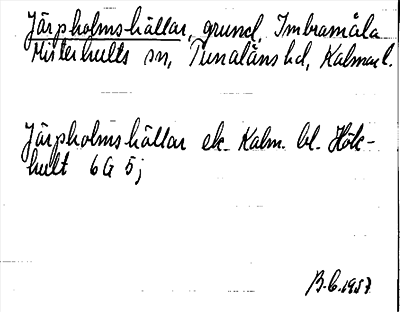 Järpholmshällar, grund, Imbramåla
Misterhults sn, Tunaläns hd, Kalmar l.
Järpholmshällar ek. Kalm. bl. Hök-
hult 6G 5j
B.C. 1957